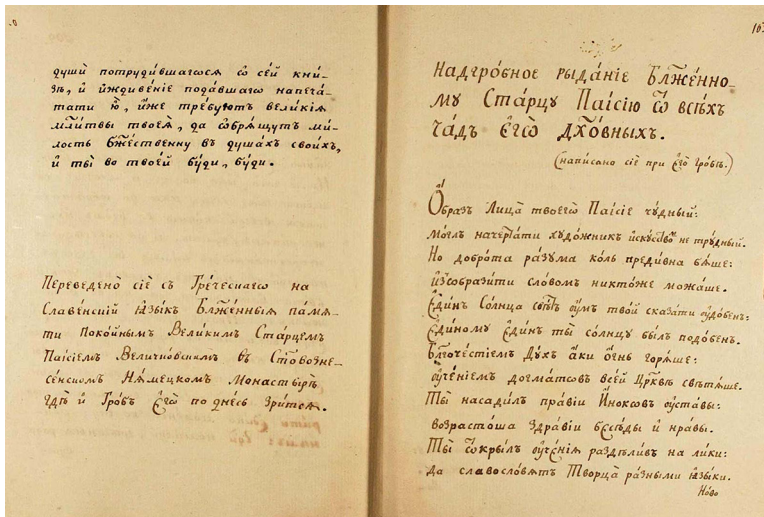 душѝ потруди́вшагѡсѧ ѡ се́й кни́-
зѣ, и҆ и҆ждиве́нїе пода́вшагѡ напеча́-
тати ю҆̀, и҆̀же тре́буютъ вели́кїѧ
мл҃и́твы твоеѧ̀, да ѡ҆брѧ́щутъ ми́-
лость бж҃е́ственну въ душа́хъ свои́хъ,
и҆ ты̀ во твое́й бꙋ́ди, бꙋ́ди.
Переведено̀ сїѐ съ Гре́ческагѡ на
Славе́нскїй ꙗ҆зы́къ Бл҃же́нныѧ па́мѧ-
ти Поко́йнымъ Вели́кимъ Ста́рцемъ
Паі́сїемъ Величко́вскимъ въ Ст҃овозне-
се́нскомъ Нѧме́цкомъ Монастырѣ̀
гдѣ̀ и҆ Гро́въ Е҆гѡ̀ по дне́сь Зри́тсѧ.
163
НАДГРО́БНОЕ РЫДА́НІЕ БЛ҃ЖЕ́ННО-
МУ СТА́РЦУ ПАІ́СІЮ Ѿ ВСѢ́ХЪ
ЧА́ДЪ Е҆ГѠ̀ ДХ҃О́ВНЫХЪ.
(написано сїѐ при Е҆гѡ̀ гро́бѣ.)
Ѻ҆́бразъ Лица̀ твоегѡ̀ Паі́сїе чу́дный:
мо́глъ начерта́ти худо́жникъ и҆скусство́мъ не тру́дный.
Но добро́та ра́зума ко́ль преди́вна бѧ́ше:
и҆зѡбрази́ти сло́вомъ никто́же можа́ше.
Е҆ди́нъ Со́лнца свѣ́тъ ᲂу҆́мъ тво́й сказа́ти ᲂу҆до́венъ:
Е҆ди́ному Е҆ди́нъ ты̀ со́лнцу бы́лъ подо́венъ.
Бл҃гоче́стїемъ Ду́хъ а҆́ки ѻ҆́гнь горѧ́ще:
ᲂу҆че́нїемъ до́гматѡвъ все́й Цр҃квѣ свѣтѧ́ше.
Ты̀ насади́лъ пра́вїи И҆́нокѡвъ ᲂу҆ста́вы:
возрасто́ша здра́вїи бесѣ́ды и҆ нра́вы.
Ты̀ ѿкры́лъ ᲂу҆че́нїѧ раздѣли́въ на ли́ки:
да славосло́вѧтъ Творца̀ ра́зными ꙗ҆зы́ки.
Но́во